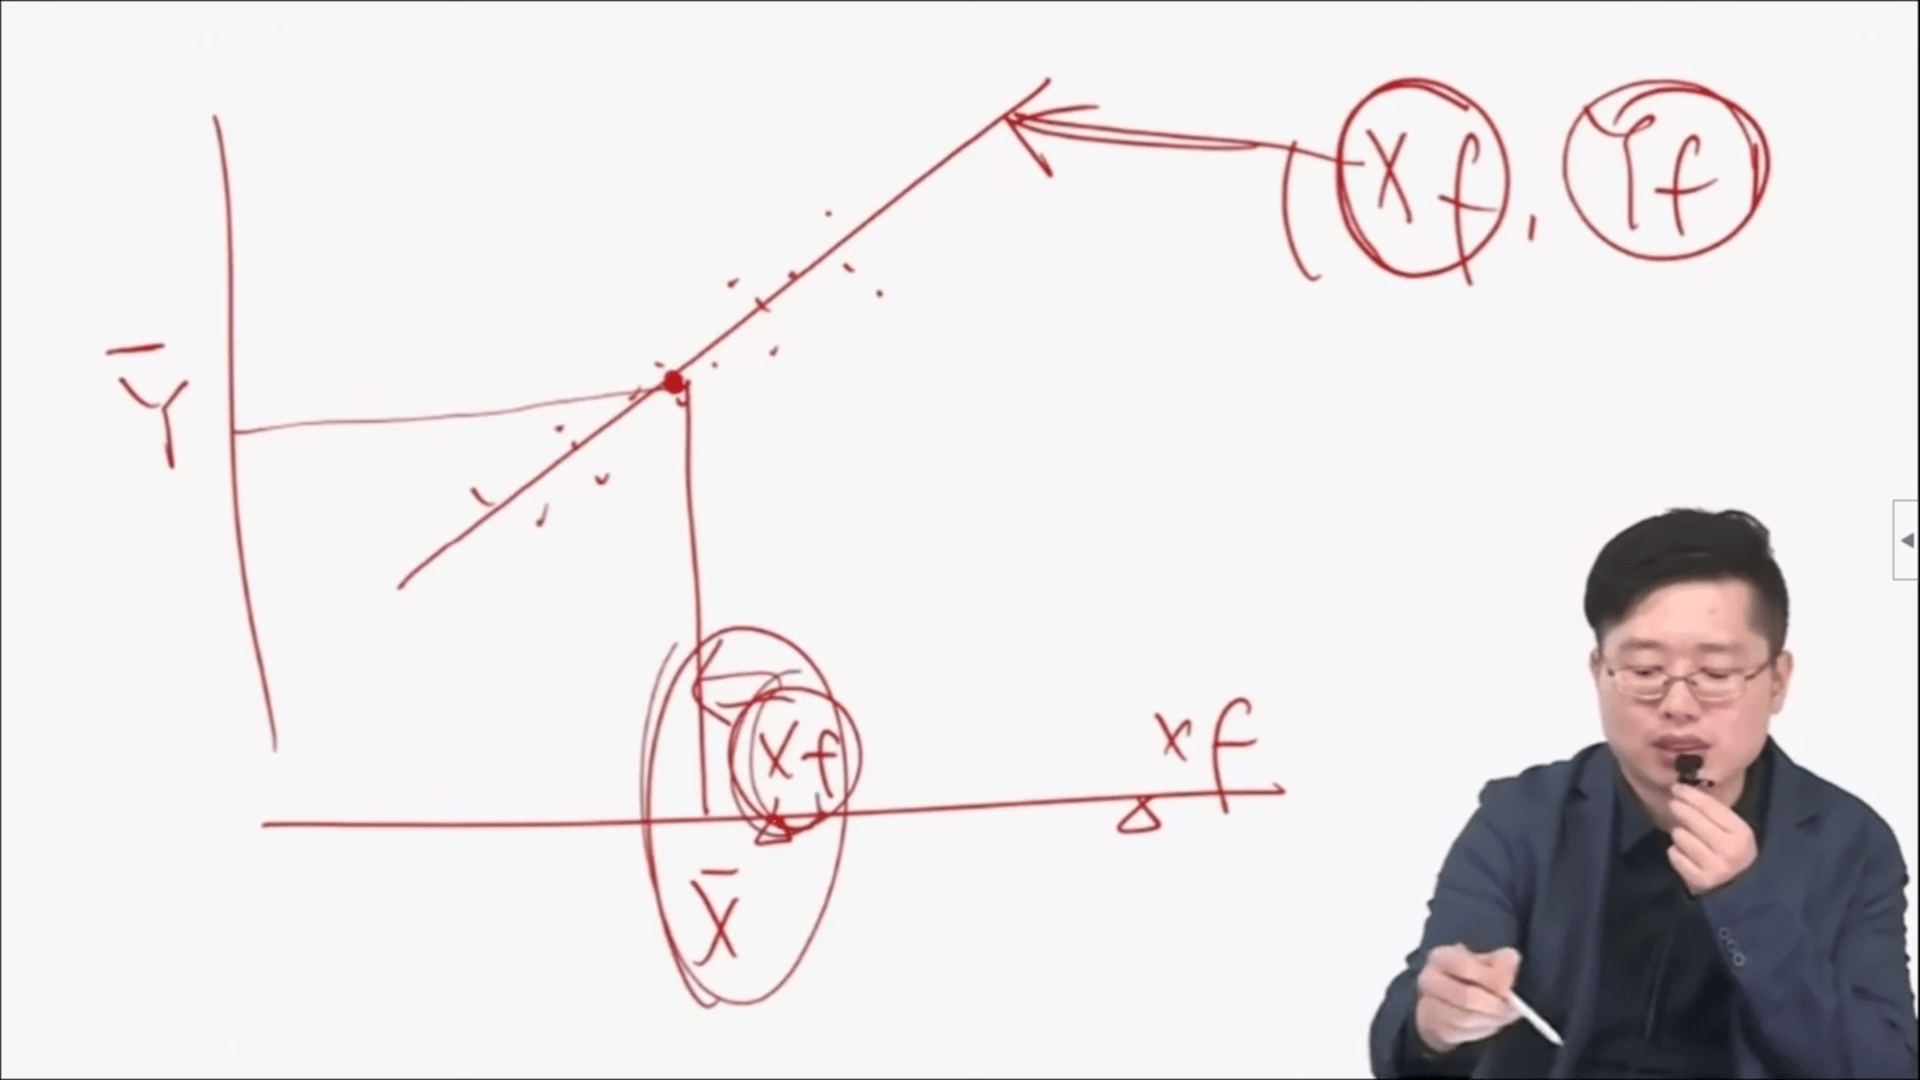 (Xf, Yf
Ȳ
Xf
xf
X̄